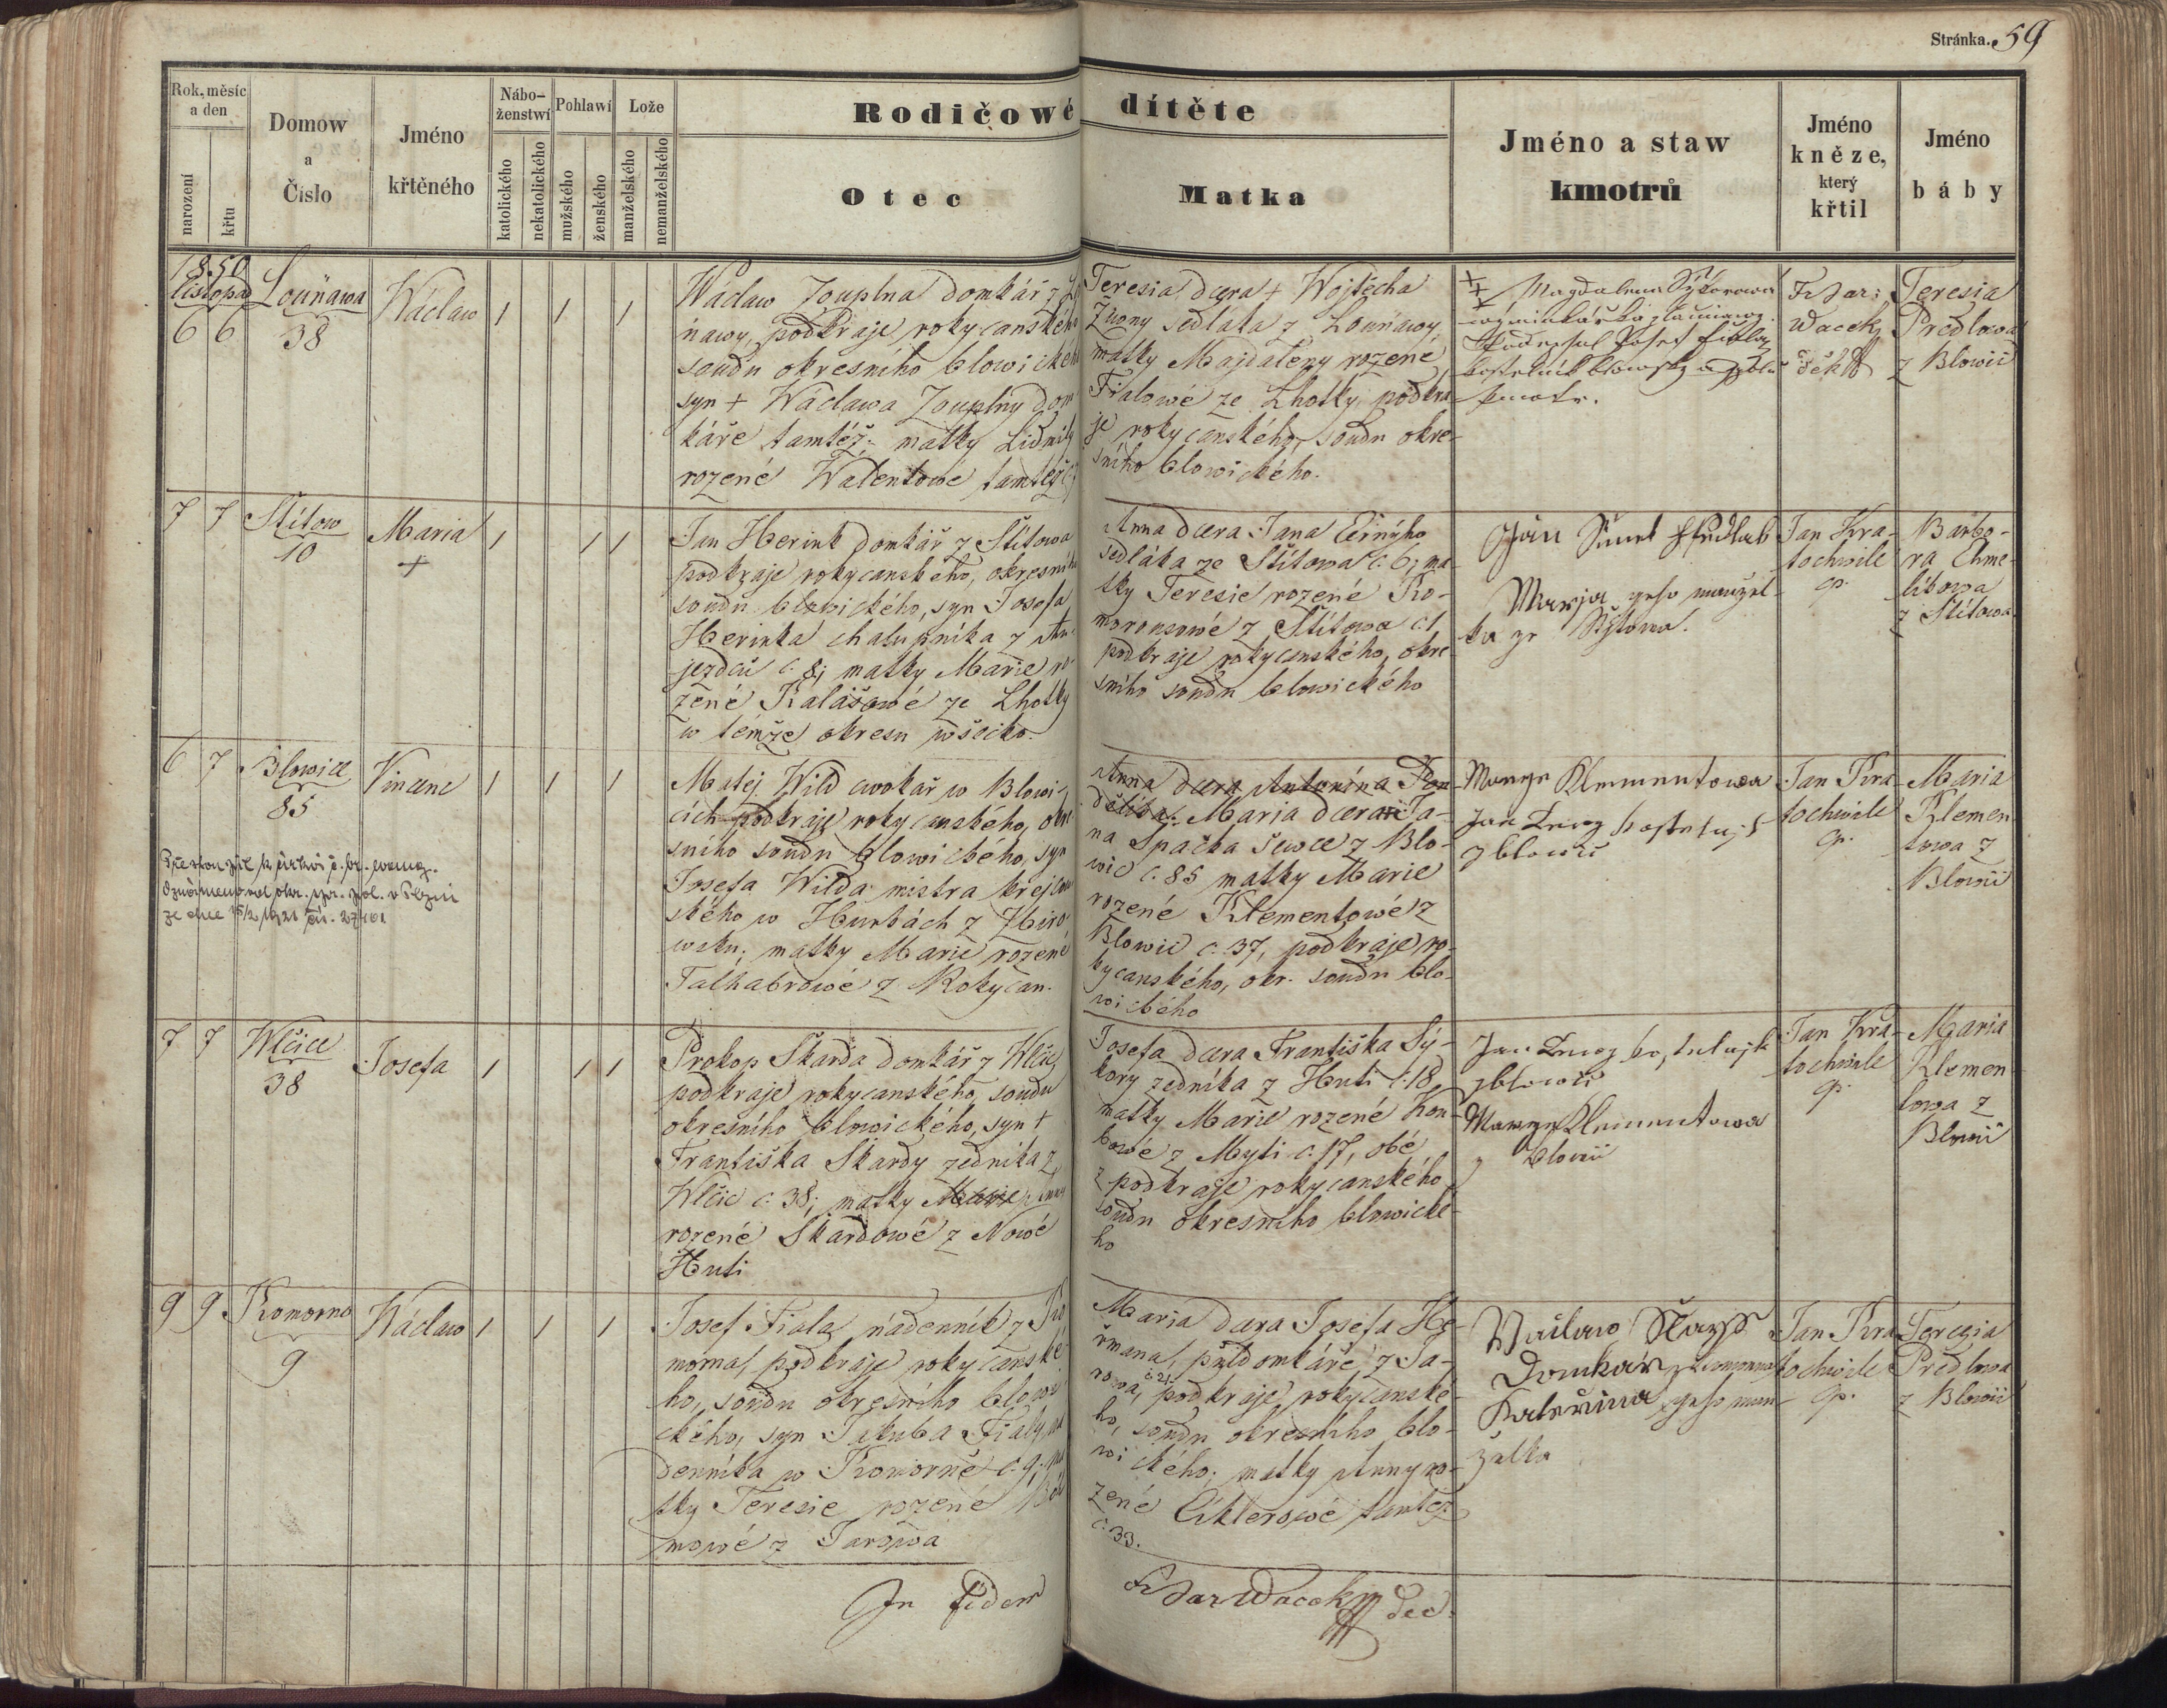 Stránka. 59
Rok, měsíc a den
narození
křtu
Domow a Číslo
Jméno křtěného
Nábo-ženstwí
katolického
nekatolického
Pohlawí
mužského
ženského
Lože
manželského
nemanželského
Rodičowé dítěte
Otec
Matka
Jméno a staw kmotrů
Jméno kněze, který křtil
Jméno báby
1850
listopad
6 6
Louňawa
38
Wáclaw
1 1 1
Wáclaw Zouplna domkář z
ňawy, podkraje rokycanského
soudu okresního blowického
syn + Wáclawa Zouplny dom
káře tamtéž; matky Lidmily
rozené Walentowé tamtéž
Teresia dcera + Wojtěcha
sedláka z Louňawy
matky Majdaleny rozené
Fialowé ze Lhotky podkra-
je rokycanského, soudu okre-
sního blowického.
+ + +
Magdalena Sýkorowa
Josef Fiala
kmotr.
Fr Dar:
Wacek
děk
Teresia
Predlowa
z Blowic
7 7
Štítow
10
Maria
+
1 1 1
Jan Herink domkář z Štítowa
podkraje rokycanského, okresního
soudu blowického, syn Josefa
Herinka chalupníka z Au-
jezdců č. 8; matky Marie ro-
zené Kalášowé ze Lhotky
w témže okresu wšecko.
Anna dcera Jana Černýho
sedláka ze Štítowa č. 6; ma-
tky Teresie rozené Ko-
morousowé z Štítowa č. 1.
podkraje rokycanského, okre
sního soudu blowického
Jan
Marja geho manžel-
ka ze Štýtowa.
Jan Kra-
tochwile
cp.
Barbo-
ra Chme-
líkowa
z Štítowa
6 7
Blowice
85
Vincenc
1 1 1
Matěj Wild cwokař w Blowi-
cích podkraje rokycanského, okre
sního soudu blowického, syn
Josefa Wilda mistra krejčow
ského w Hurkách z
matky Marie rozené
Talhabrowé z Rokycan.
Anna dcera Antonína Pon
dělíka. Maria dcera Ja-
na Špačka ševce z Blo-
wic č. 85 matky Marie
rozené Klementowé z
Blowic č. 37, podkraje ro-
kycanského, okr. soudu blo-
wického
Marye Klementowa
Jan
z blowic
Jan Kra
tochwile
cp.
Maria
Klemen
towa z
Blowic
7 7
Wlčice
38
Josefa
1 1 1
Prokop Škarda domkář z Wlčic
podkraje rokycanského, soudu
okresního blowického, syn +
Františka Škardy zedníka z
Wlčic č. 38; matky Marie Anny
rozené Škardowé z Nowé
Huti
Josefa dcera Františka Sý-
kory zedníka z Huti č. 18,
matky Marie rozené Kou
bowé z Myti č. 17, obě
z podkraje rokycanského
soudu okresního blowické
ho
Jan
z blowic
Marye Klementowa
z blowic
Jan Kra-
tochwile
cp.
Maria
Klemen
towa z
Blowic
9 9
Komorno
9
Wáclaw
1 1 1
Josef Fiala nádenník z Ko
morna, podkraje rokycanské
ho, soudu okresního blowi
ckého, syn Jakuba Fialy ná
denníka w Komorně č. 9. ma
tky Teresie rozené
mowé z Jarowa
Maria dcera Josefa He-
řmana, půldomkáře z Ja-
rowa, č 21. podkraje rokycanské-
ho, soudu okresního blo-
wického; matky Anny ro-
zené Ciklerowé tamtéž
č. 33.
Waclaw
Domkař z komorna
Kateřina geho man-
želka
Jan Kra
tochwile
cp.
Teregia
Predlowa
z Blowic
In fidem
Fr Dar Wacek Dec.